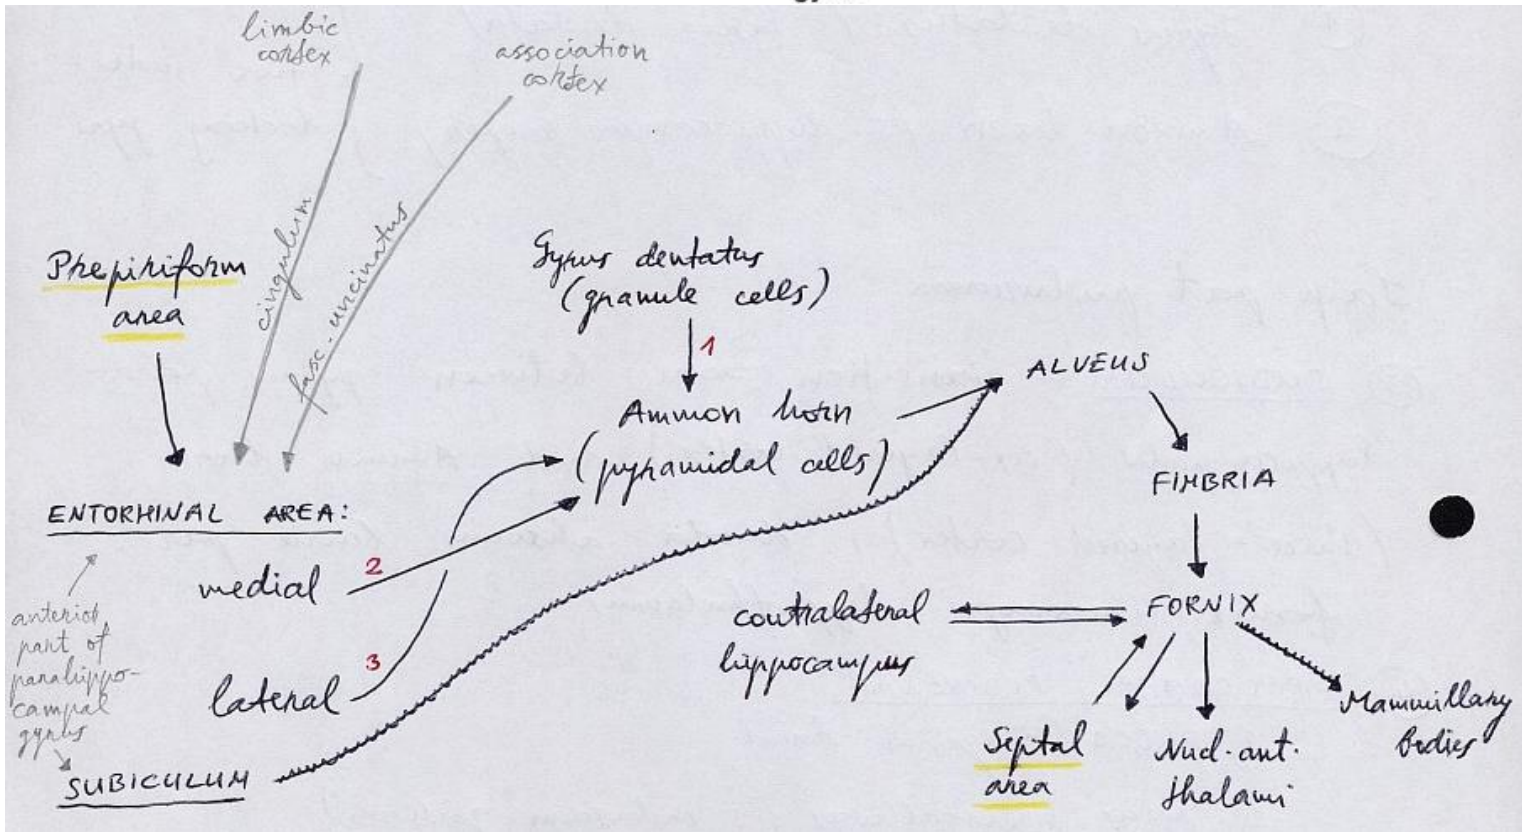 limbic
cortex
association
cortex
cingulum
fasc. uncinatus
Prepiriform
area
Gyrus dentatus
(granule cells)
1
Ammon horn
(pyramidal cells)
ALVEUS
FIMBRIA
FORNIX
ENTORHINAL AREA:
medial
2
lateral
3
anterior
part of
parahippo-
campal
gyrus
SUBICULUM
contralateral
hippocampus
Septal
area
Nucl. ant.
thalami
Mammillary
bodies